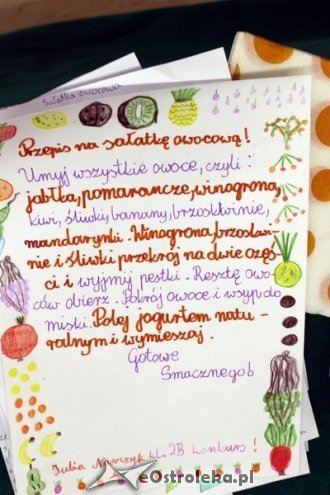 Sałatka owocowa
Przepis na sałatkę owocową!
Umyj wszystkie owoce, czyli:
jabłka, pomarańcze, winogrona,
kiwi, śliwki, banany, brzoskwinie,
mandarynki. Winogrona, brzoskwi-
nie i śliwki przekrój na dwie częś-
ci i wyjmij pestki. Resztę owo-
ców obierz. Pokrój owoce i wsyp do
miski. Polej jogurtem natu-
ralnym i wymieszaj.
Gotowe
Smacznego
Julia kl. 2B konkurs!
eOstroleka.pl